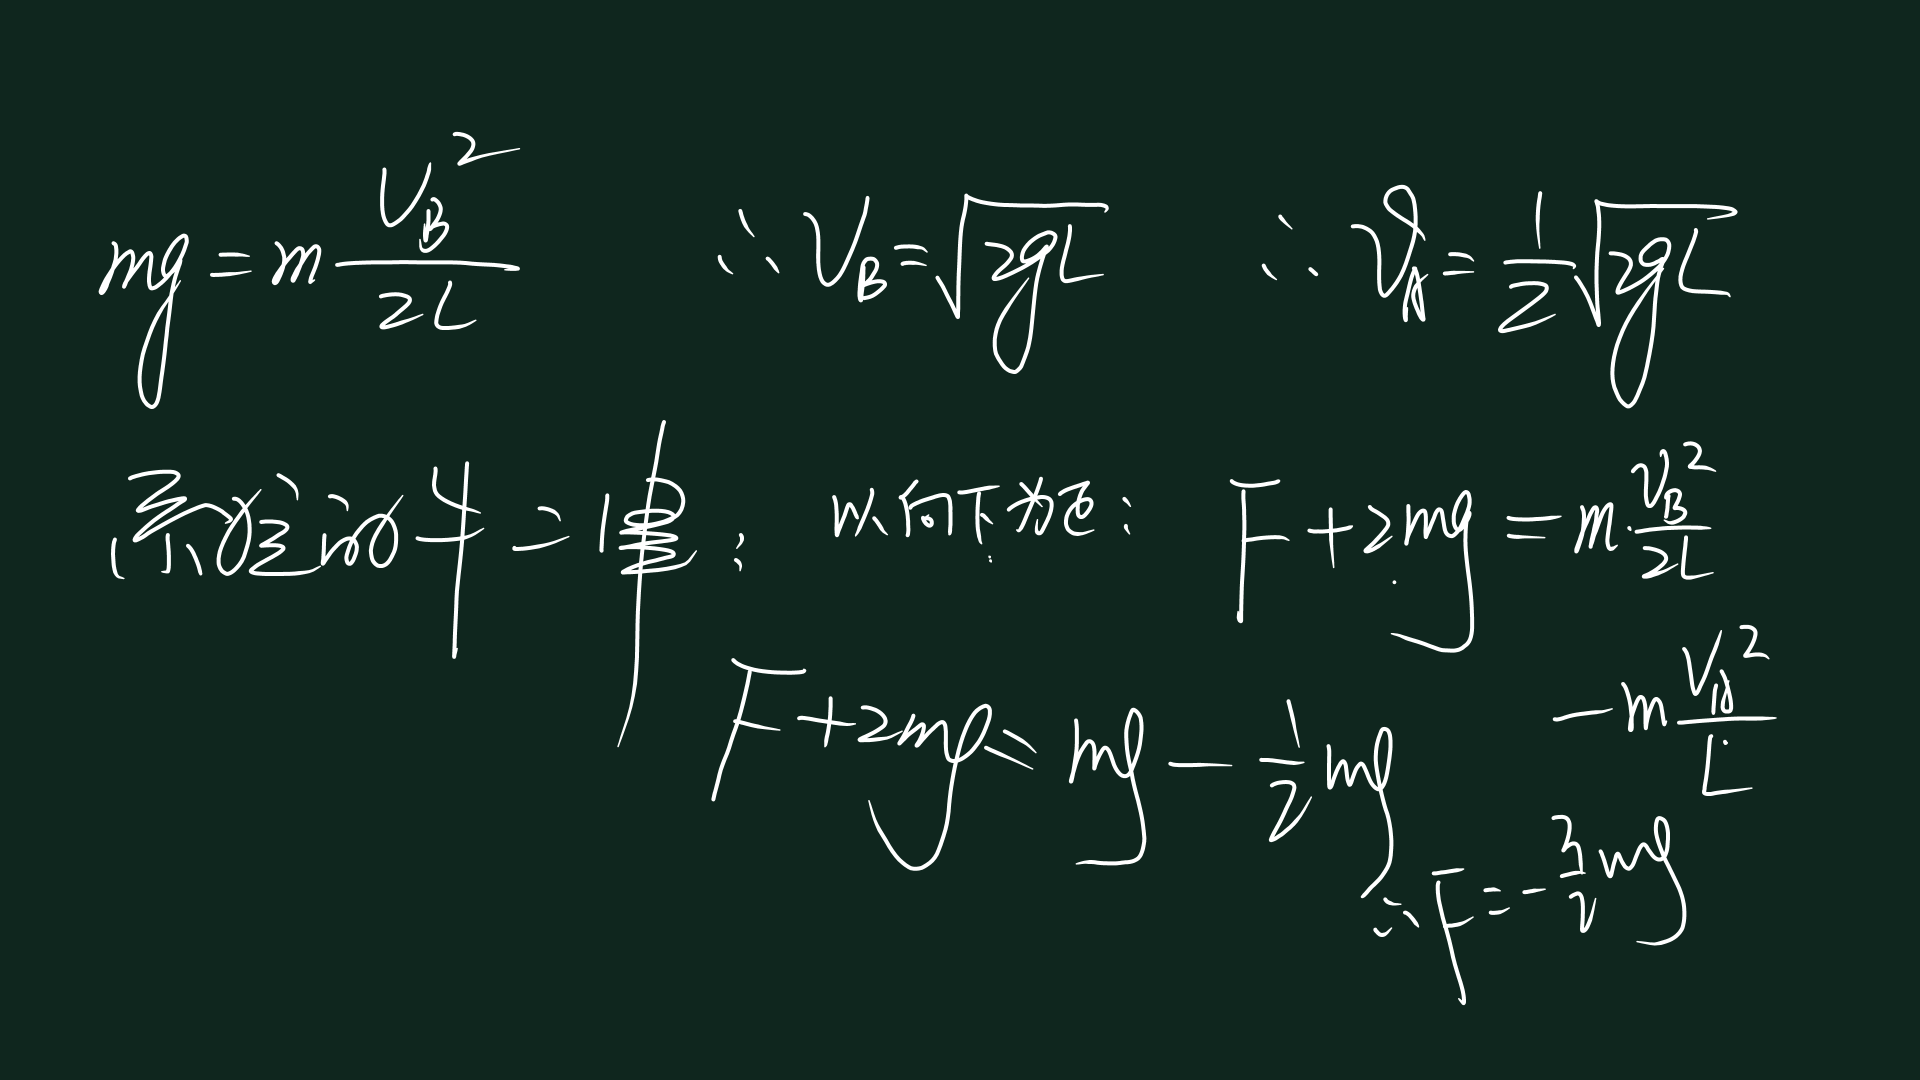 mg = m v_B²/2L ∴ v_B = √2gL ∴ v_A = ½√2gL
系统的牛二律: 以向下为正: F + 2mg = m v_B²/2L
- m v_A²/L
F + 2mg = mg - ½mg
∴ F = - 3/2 mg